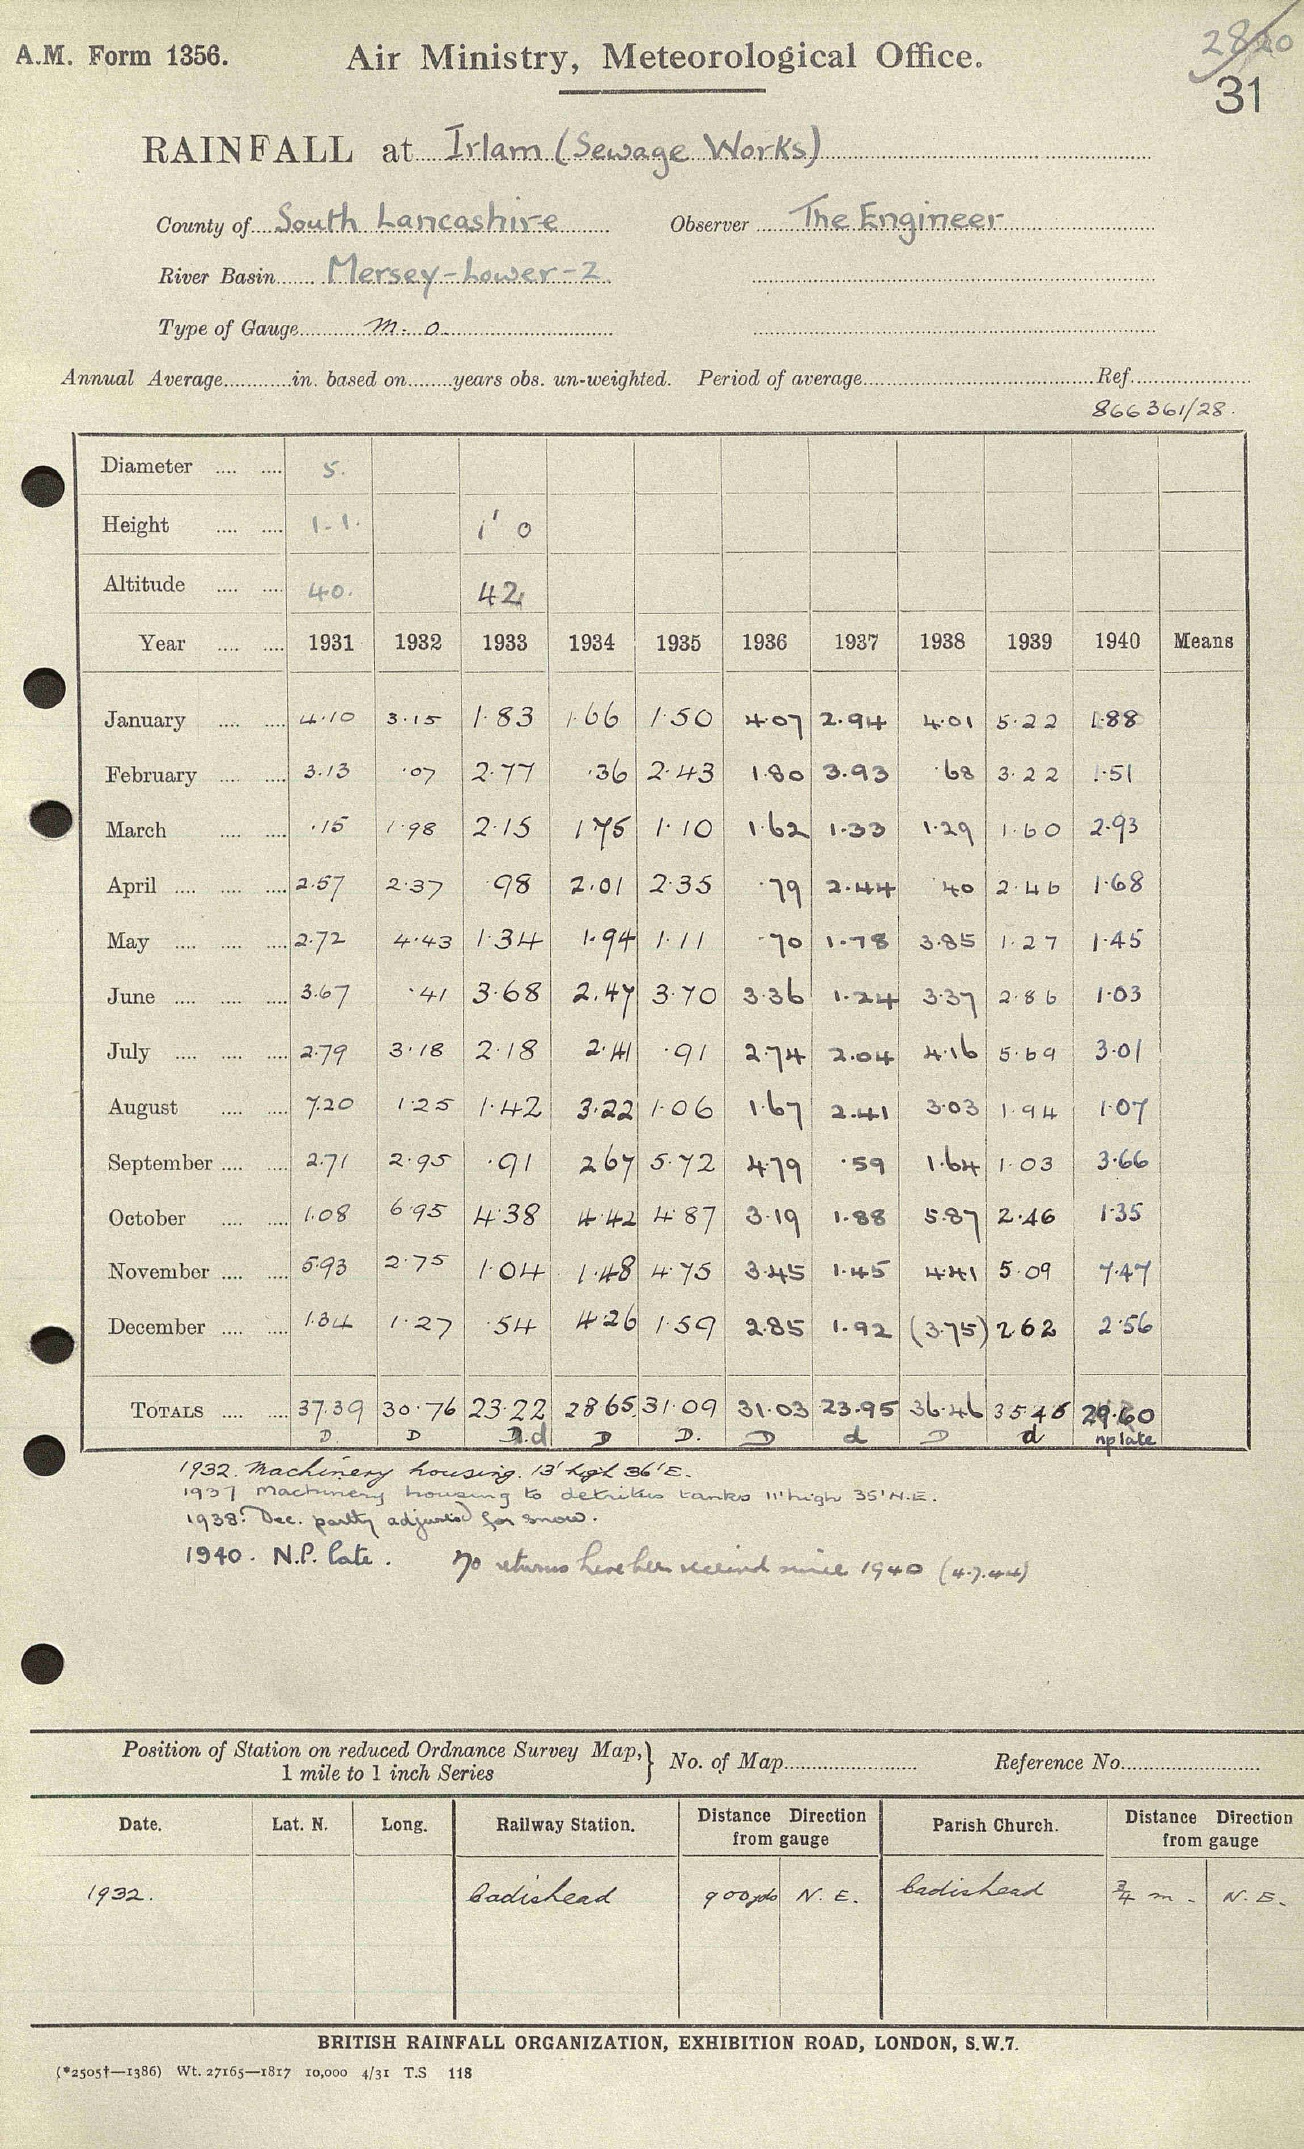 A.M. Form 1356.
Air Ministry, Meteorological Office.
2820
31
RAINFALL at Irlam (Sewage Works)
County of South Lancashire Observer The Engineer
River Basin Mersey-Lower-2
Type of Gauge M.O.
Annual Average in. based on years obs. un-weighted. Period of average Ref.
866361/28.
Diameter 5.
Height 1-1. 1' 0
Altitude 40. 42
Year 1931 1932 1933 1934 1935 1936 1937 1938 1939 1940 Means
January 4.10 3.15 1.83 1.66 1.50 4.07 2.94 4.01 5.22 1.88
February 3.13 .07 2.77 .36 2.43 1.80 3.93 .68 3.22 1.51
March .15 1.98 2.15 1.75 1.10 1.62 1.33 1.29 1.60 2.93
April 2.57 2.37 .98 2.01 2.35 .79 2.44 .40 2.46 1.68
May 2.72 4.43 1.34 1.94 1.11 .70 1.78 3.85 1.27 1.45
June 3.67 .41 3.68 2.47 3.70 3.36 1.24 3.37 2.86 1.03
July 2.79 3.18 2.18 2.41 .91 2.74 2.04 4.16 5.69 3.01
August 7.20 1.25 1.42 3.22 1.06 1.67 2.41 3.03 1.94 1.07
September 2.71 2.95 .91 2.67 5.72 4.79 .59 1.64 1.03 3.66
October 1.08 6.95 4.38 4.42 4.87 3.19 1.88 5.87 2.46 1.35
November 5.93 2.75 1.04 1.48 4.75 3.45 1.45 4.41 5.09 7.47
December 1.34 1.27 .54 4.26 1.59 2.85 1.92 (3.75) 2.62 2.56
TOTALS 37.39 30.76 23.22 28.65 31.09 31.03 23.95 36.46 35.46 29.60
D. D D.d D D. D d D d np late
1932. Machinery housing. 13' high 36' E.
1937 Machinery housing to detritus tanks 11' high 35' N.E.
1938: Dec. partly adjusted for snow.
1940. N.P. late. No returns have been received since 1940 (4.7.44)
Position of Station on reduced Ordnance Survey Map, } No. of Map Reference No.
1 mile to 1 inch Series
Date. Lat. N. Long. Railway Station. Distance Direction from gauge Parish Church. Distance Direction from gauge
1932. Cadishead 900yds N.E. Cadishead 3/4 m. N.E.
BRITISH RAINFALL ORGANIZATION, EXHIBITION ROAD, LONDON, S.W.7.
(*2505†—1386) Wt. 27165—1817 10,000 4/31 T.S 118